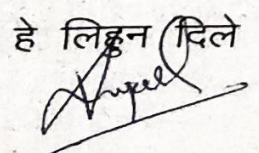 हे लिहून दिले